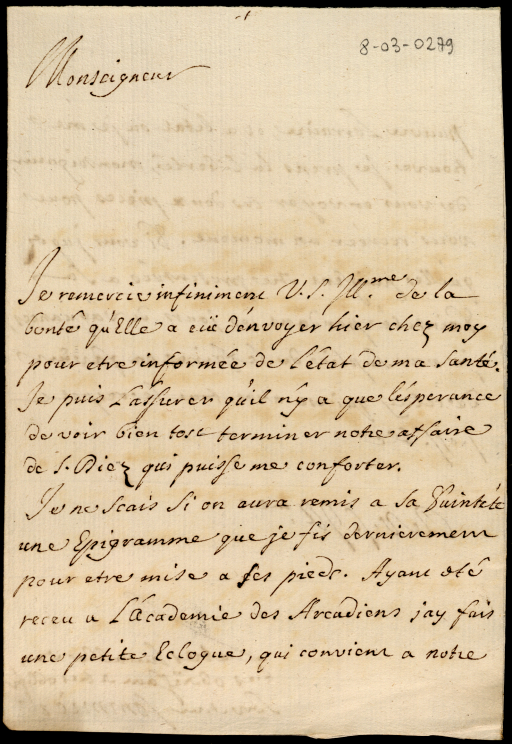 8-03-0279
Monseigneur
Je remercie infiniment V. S. Ill.me de la
bonté qu'Elle a eüe d'envoyer hier chez moy
pour etre informée de l'état de ma santé.
Je puis l'assurer qu'il n'y a que l'ésperance
de voir bien tost terminer notre affaire
de S. Diez qui puisse me conforter.
Je ne scais si on aura remis a sa Sainteté
une Epigramme que je fis dernierement
pour etre mise a ses pieds. Ayant été
receu a L'Academie des Arcadiens j'ay fait
une petite Eclogue, qui convient a notre